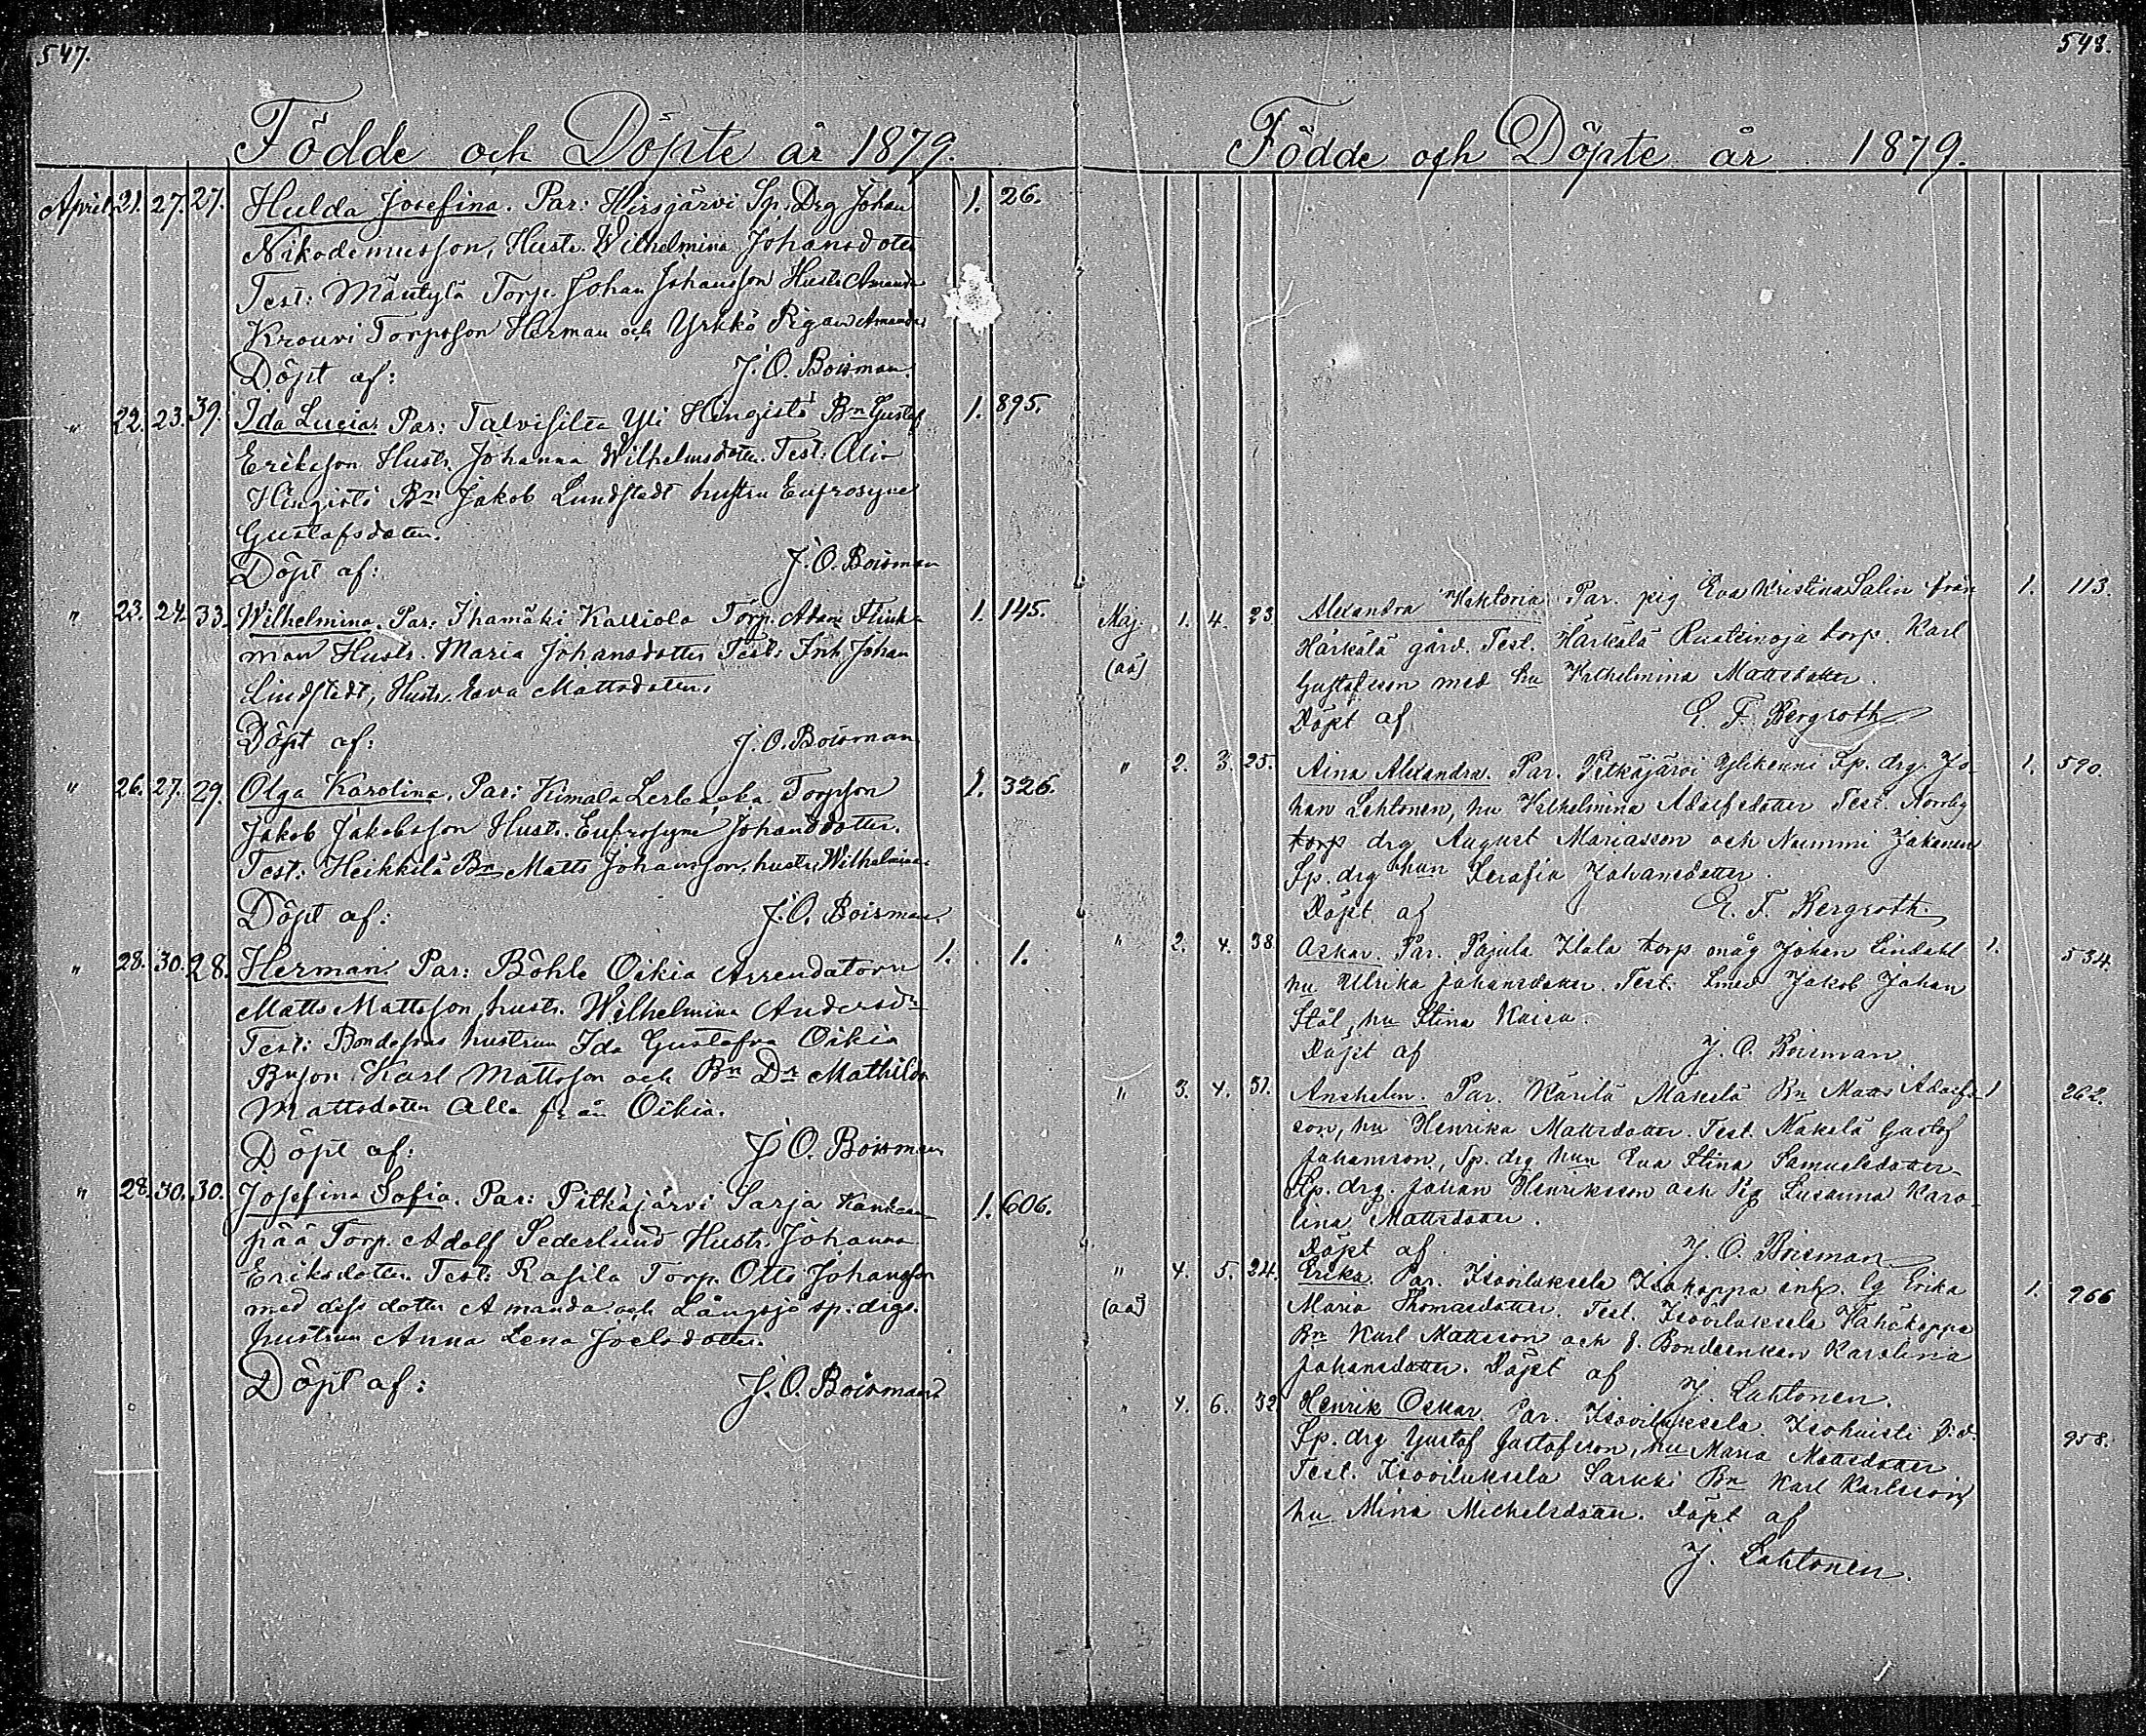 547.
Födde och Döpte år 1879.
April 21. 27. 27. Hulda Josefina. Par: Hirsjärvi Sp. Drg Johan 1. 26.
Nikodemusson, Hustr. Wilhelmina Johansdoter
Test: Mäntylä Torp. Johan Johansson Hustr Amanda
Krouvi Torpsson Herman och Yrkkö Pigan Amanda
Döpt af: J. O. Boisman.
" 22. 23. 39. Ida Lucia. Par: Talvisilta Yli Hingistö Bn Gustaf 1. 895.
Eriksson Hustr. Johanna Wilhelmsdoter. Test: Ali-
Hingistö Bn Jakob Lundstedt hustru Eufrosyne
Gustafsdoter.
Döpt af: J. O. Boisman
" 23. 24. 33. Wilhelmina. Par: Ihamäki Torp. Adam Flink- 1. 145.
man Hustr. Maria Johansdotter Test: Inh Johan
Lindstedt, Hustr. Eva Mattsdoter.
Döpt af: J. O. Boisman
" 26. 27. 29. Olga Karolina. Par: Kimala Torpson 1. 326.
Jakob Jakobsson Hustr. Eufrosyne Johansdotter.
Test: Heikkilä Bn Matts Johansson, hustr. Wilhelmina
Döpt af: J. O. Boisman.
" 28. 30. 28. Herman. Par: Böhle Oikia Arrendatorn 1. 1.
Matts Mattsson, hustr. Wilhelmina Andersdr
Test: Bondesons hustrun Ida Gustafva Oikia
Bnson Karl Mattsson och Bn Dr Mathilda
Mattsdoter Alla från Oikia.
Döpt af: J. O. Boisman
" 28. 30. 30. Josefina Sofia. Par: Pitkäjärvi Sarja Kankaan 1. 606.
pää Torp. Adolf Sederlund Hustr. Johanna
Eriksdotter. Test: Rasila Torp. Otto Johansson
med dess dotter Amanda och Långsjö sp. drgs.
hustrun Anna Lena Joelsdotter.
Döpt af: J. O. Boisman
548.
Födde och Döpte år 1879.
Maj. 1. 4. 23. Alexandra Viktoria. Par. pig. Eva Kristina Salin från 1. 113.
(aä) Härkälä gård. Test. Härkälä Ruotinoja torp. Karl
Gustafsson med hu Vilhelmina Mattsdotter.
Döpt af E. F. Bergroth
" 2. 3. 25. Aina Alexandra. Par. Pitkäjärvi Ylikenni Sp. drg. Jo- 1. 590.
han Lehtonen, hu Vilhelmina Adolfsdotter Test. Norrby
torp drg August Mariasson och Nummi Jakanen
Sp. drg hun Serafia Johansdotter.
Döpt af E. F. Bergroth.
" 2. 4. 38. Oskar. Par. Pajula Ilola torp. måg Johan Lindahl 1. 534.
hu Ulrika Johansdotter. Test. Smed Jakob Johan
Stål, hu Stina Kaisa.
Döpt af J. O. Boisman
" 3. 4. 31. Anshelm. Par. Kärilä Makelä Bn Matts Adolfs- 1 262.
son, hu Henrika Mattsdotter. Test. Makelä Gustaf
Johansson, Sp. drg hun Eva Stina Samuelsdotter
Sp. drg. Johan Henriksson och Pig Susanna Karo-
lina Mattsdotter.
Döpt af. J. O. Boisman
" 4. 5. 24. Erika. Par. Isoviluksela Isokoppa inh. lg Erika 1. 266
(aä) Maria Thomasdotter. Test. Isoviluksela Vähäkoppa
Bn Karl Mattsson och f. Bondeenkan Karolina
Johansdotter. Döpt af J. Lahtonen.
" 4. 6. 32 Henrik Oskar. Par. Isoviluksela Isohuisti 958.
Sp. drg Gustaf Gustafsson, hu Maria Mattsdotter
Test. Isoviluksela Sarkki Bn Karl Karlsson
hu Mina Michelsdotter. Döpt af
J. Lahtonen.